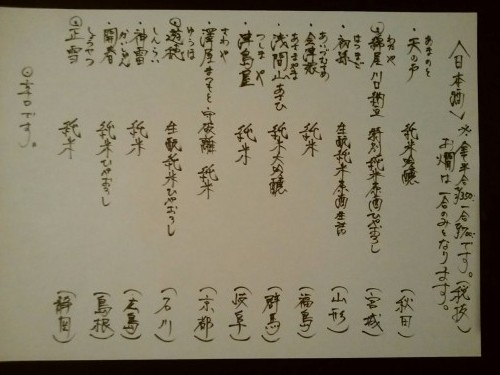 〈日本酒〉 ※全半合350一合700です。(税抜)
お燗は一合のみとなります。
あまのと
・天の戸 純米吟醸 (秋田)
わたや
綿屋 特別純米 (宮城)
はつまご
・初孫 生酛純米 (山形)
あいづむすめ
・会津娘 純米 (福島)
あさまやま
・浅間山 純米大吟醸 (群馬)
つしまや
・津島屋 純米 (岐阜)
さわや
・澤屋まつもと・守破離 純米 (京都)
ゆうほ
遊穂 生酛純米ひやおろし (石川)
しんらい
・神雷 純米 (広島)
かいしゅん
・開春 純米ひやおろし (島根)
しょうせつ
正雪 純米 (静岡)
辛口です。